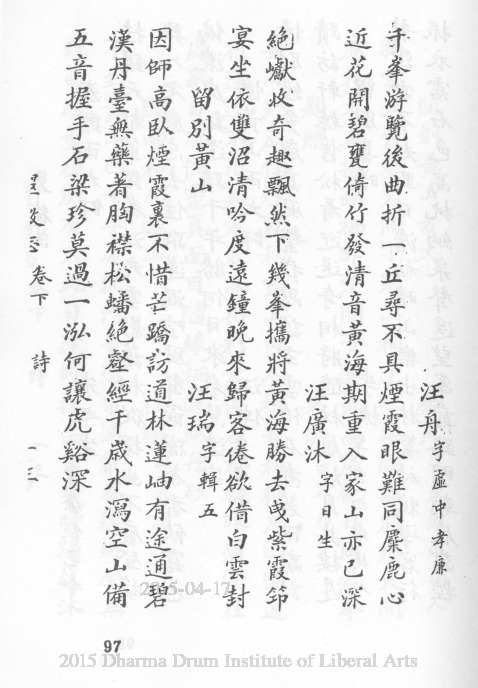 汪舟字虛中孝廉
千峯游覽後曲折一丘尋不具煙霞眼難同麋鹿心
近花開碧甕倚竹發清音黃海期重入家山亦已深
汪廣沐字日生
絶巘收奇趣飄然下幾峯攜將黃海勝去曳紫霞筇
宴坐依雙沼清吟度遠鐘晚來歸客倦欲借白雲封
留別黃山
汪瑞字輯五
因師高臥煙霞裏不惜芒蹻訪道林蓮岫有途通碧
漢丹臺無藥著胸襟松蟠絶壑經千歲水瀉空山備
五音握手石梁珍莫過一泓何讓虎谿深
卷下
詩
2015-04-17
97
2015 Dharma Drum Institute of Liberal Arts